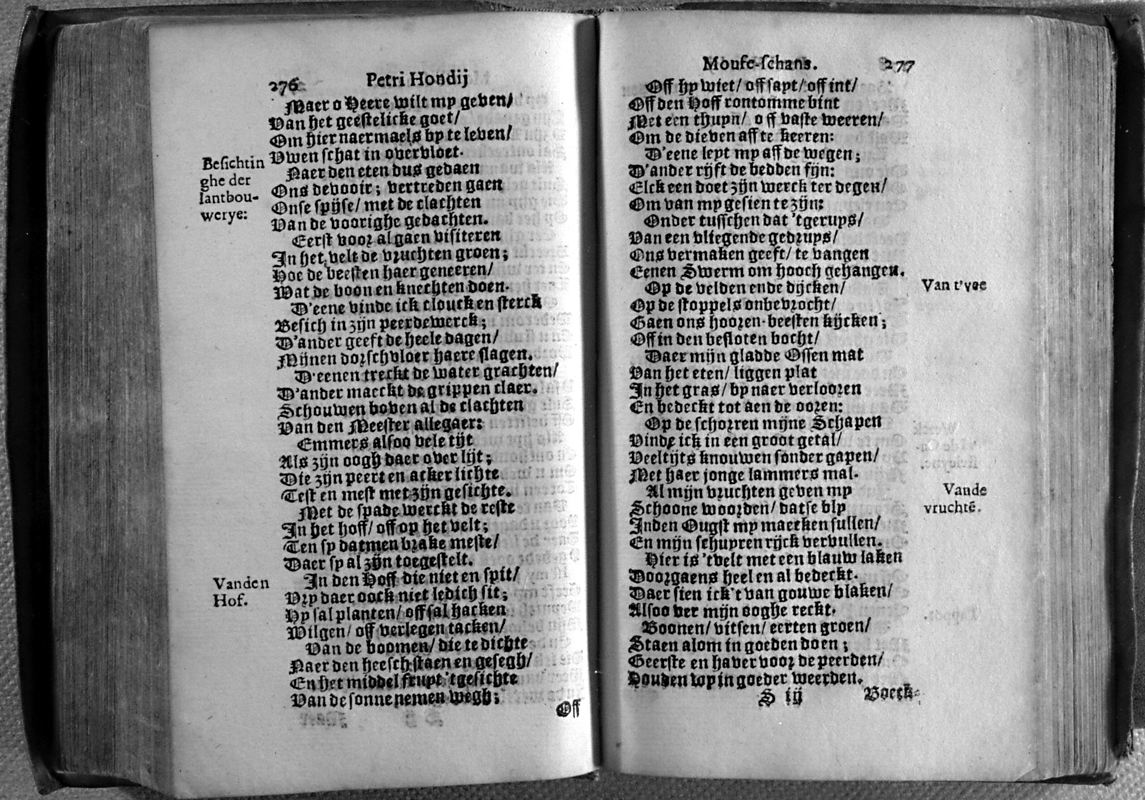 276 Petri Hondij
Maer o Heere wilt my geven/
Van het geestelicke goet/
Om hier naermaels by te leven/
Vwen schat in overvloet.
Besichtin
ghe der
lantbou-
werye:
Naer den eten dus gedaen
Ons devooir; vertreden gaen
Onse spijse/ met de clachten
Van de voorighe gedachten.
Eerst voor al gaen visiteren
In het velt de vruchten groen;
Hoe de beesten haer geneeren/
Wat de boon en knechten doen.
D'eene vinde ick clouck en sterck
Besich in zijn peerdewerck;
D'ander geeft de heele dagen/
Mijnen dorschvloer haere slagen.
D'eenen treckt de water grachten/
D'ander maeckt de grippen claer.
Schouwen boven al de clachten
Van den Meester allegaer:
Emmers alsoo vele tijt
Als zijn oogh daer over lijt;
Die zijn peert en acker lichte
Test en mest met zijn gesichte.
Met de spade werckt de reste
In het hoff/ off op het velt;
Ten sy datmen brake meste/
Daer sy al zijn toegestelt.
Vanden
Hof.
In den Hoff die niet en spit/
Vry daer oock niet ledich sit;
Hy sal planten/ off sal hacken
Wilgen/ off verlegen tacken/
Van de boomen/ die te dichte
Naer den heesch staen en gesegh/
En het middel fruyt 'tgesichte
Van de sonne nemen wegh;
Off
Mouse-schans. 277
Off hy wiet/ off sapt/ off int/
Off den Hoff rontomme bint
Met een thuyn/ off vaste weeren/
Om de dieven aff te keeren:
D'eene leyt my aff de wegen;
D'ander rijft de bedden fijn:
Elck een doet zijn werck ter degen/
Om van my gesien te zijn:
Onder tusschen dat 'tgeruys/
Van een vliegende gedruys/
Ons vermaken geeft/ te vangen
Eenen Swerm om hooch gehangen.
Van t'vee
Op de velden ende dijcken/
Op de stoppels onbevrocht/
Gaen ons hooren-beesten kijcken;
Off in den besloten bocht/
Daer mijn gladde Ossen mat
Van het eten/ liggen plat
In het gras/ by naer verlooren
En bedeckt tot aen de ooren:
Op de schorren mijne Schapen
Vinde ick in een groot getal/
Veeltijts knouwen sonder gapen/
Met haer jonge lammers mal.
Vande
vruchtē.
Al mijn vruchten geven my
Schoone woorden/ datse bly
Inden Ougst my maecken sullen/
En mijn schuyren rijck vervullen.
Hier is 'tvelt met een blauw laken
Doorgaens heel en al bedeckt.
Daer sien ick't van gouwe blaken/
Alsoo ver mijn ooghe reckt.
Boonen/ vitsen/ eerten groen/
Staen alom in goeden doen;
Geerste en haver voor de peerden/
Houden wy in goeder weerden.
S ij Boeck-